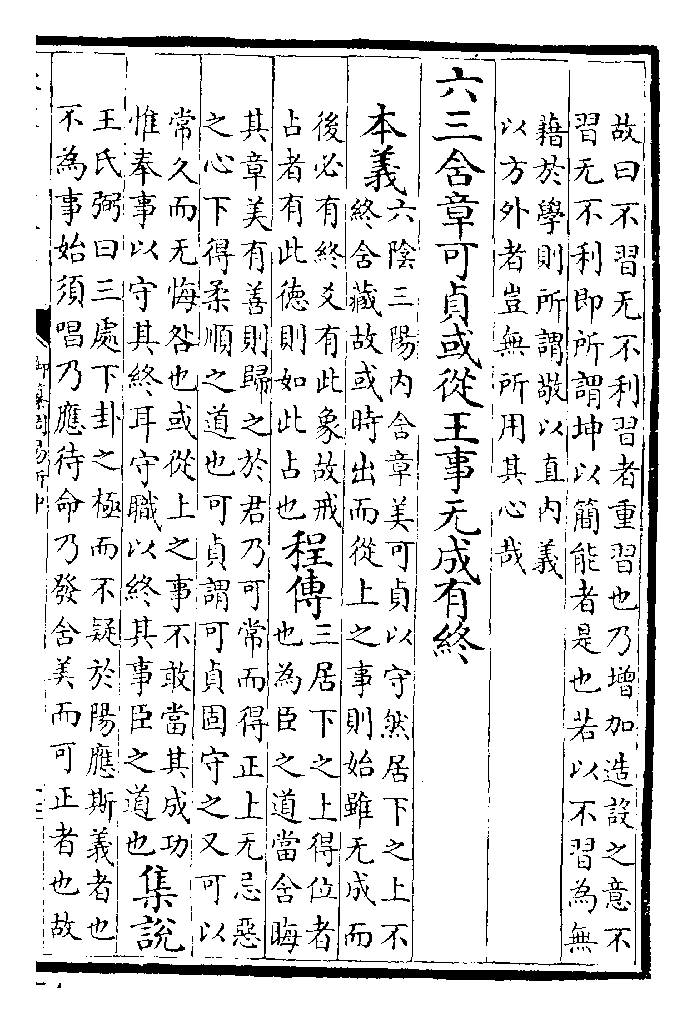 故曰不習无不利習者重習也乃增加造設之意不
習无不利即所謂坤以簡能者是也若以不習為無
藉於學則所謂敬以直內義
以方外者豈無所用其心哉
六三含章可貞或從王事无成有終
本義六陰三陽內含章美可貞以守然居下之上不
終含藏故或時出而從上之事則始雖无成而
後必有終爻有此象故戒
占者有此德則如此占也
程傳三居下之上得位者
也為臣之道當含晦
其章美有善則歸之於君乃可常而得正上无忌惡
之心下得柔順之道也可貞謂可貞固守之又可以
常久而无悔咎也或從上之事不敢當其成功
惟奉事以守其終耳守職以終其事臣之道也
集說
王氏弼曰三處下卦之極而不疑於陽應斯義者也
不為事始須唱乃應待命乃發含美而可正者也故
御纂周易折中